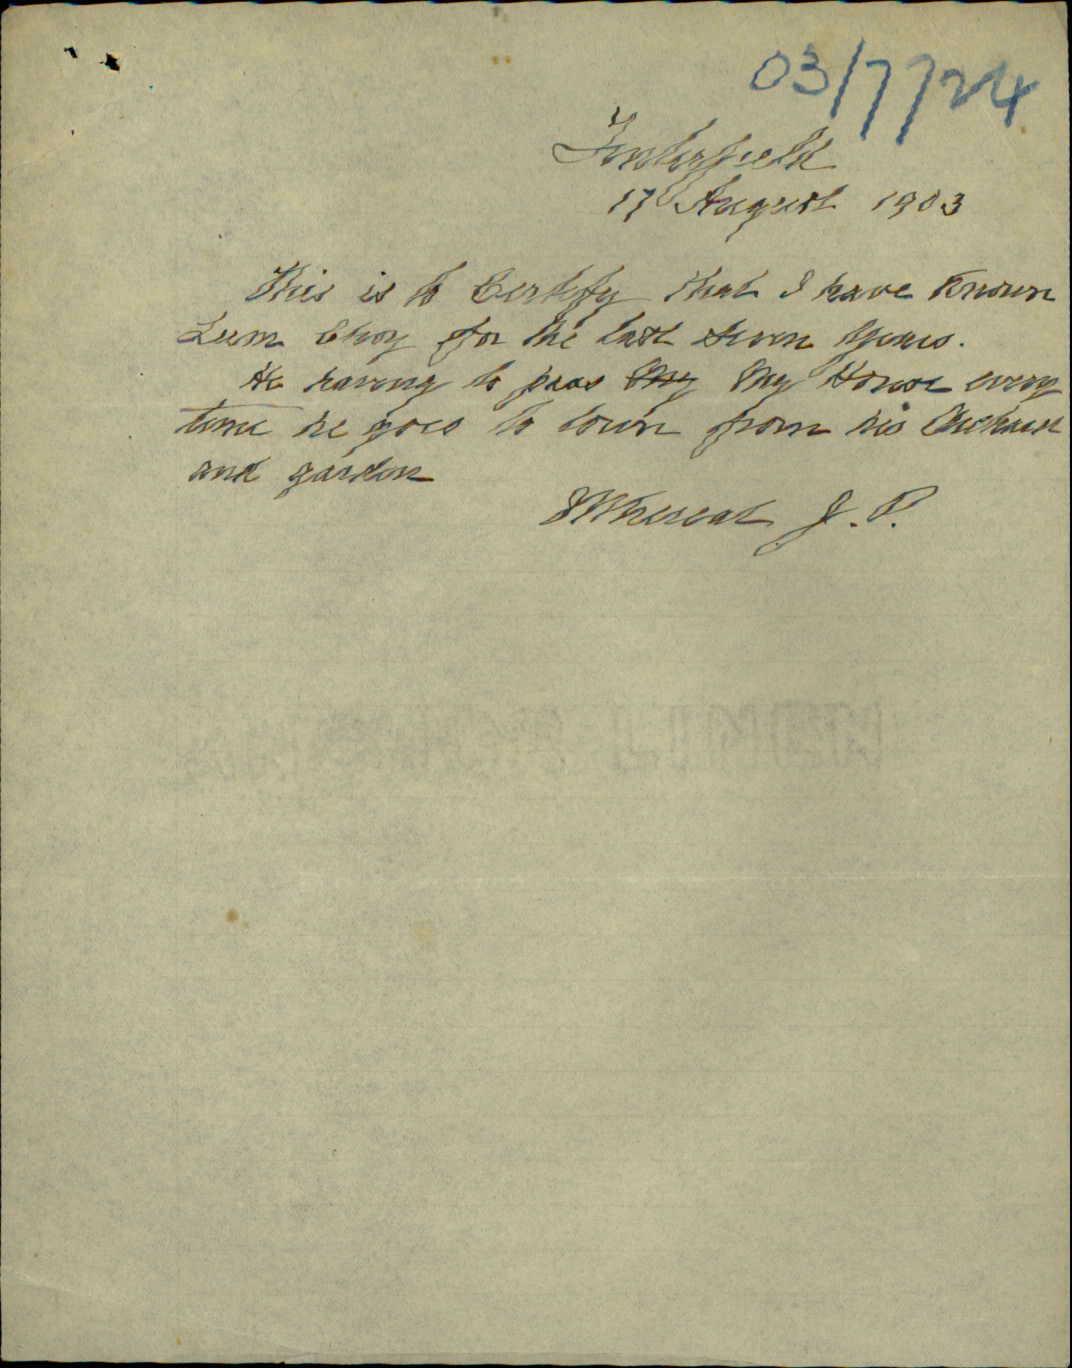 03/7724
Tenterfield
17 August 1903
This is to Certify that I have Known
Lum Choy for the last seven Years.
He having to pass My My House every
time he goes to town from his Orchard
and garden
Whereat J. P.